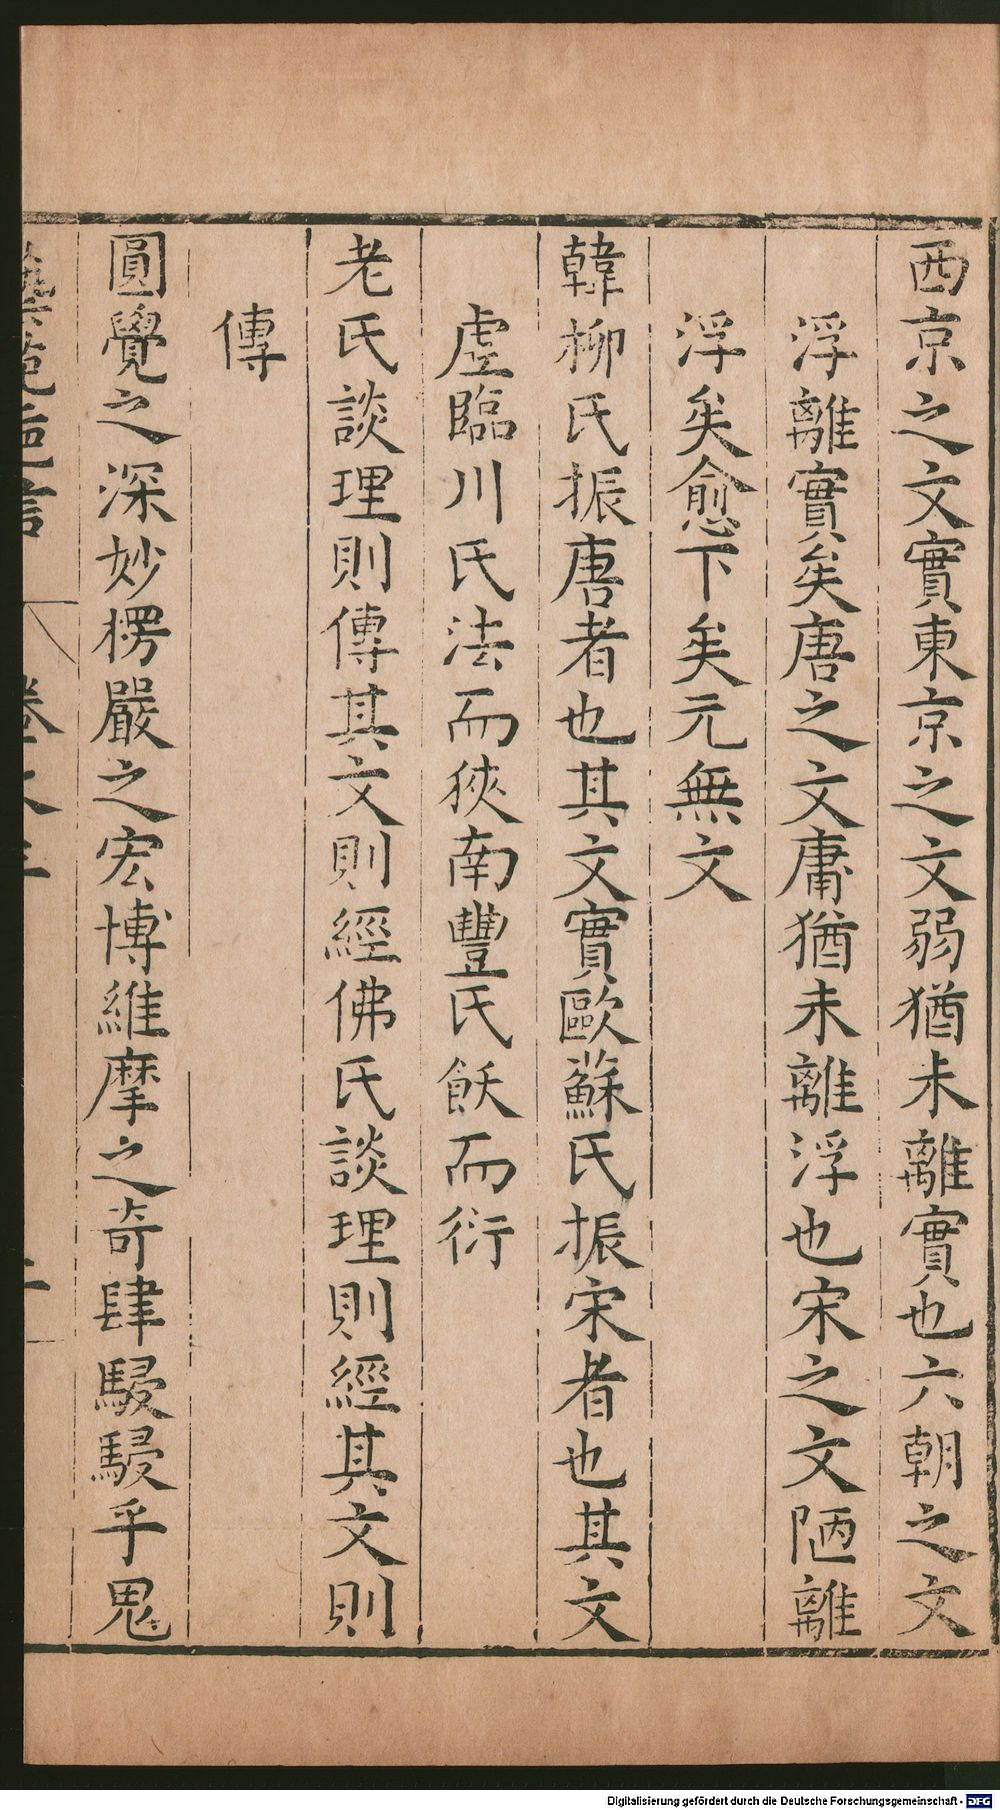 西京之文實東京之文弱猶未離實也六朝之文
浮離實矣唐之文庸猶未離浮也宋之文陋離
浮矣愈下矣元無文
韓柳氏振唐者也其文實歐蘇氏振宋者也其文
虛臨川氏法而狹南豐氏飫而衍
老氏談理則傳其文則經佛氏談理則經其文則
傳
圓覺之深妙楞嚴之宏博維摩之奇肆駸駸乎鬼
Digitalisierung gefördert durch die Deutsche Forschungsgemeinschaft - DFG